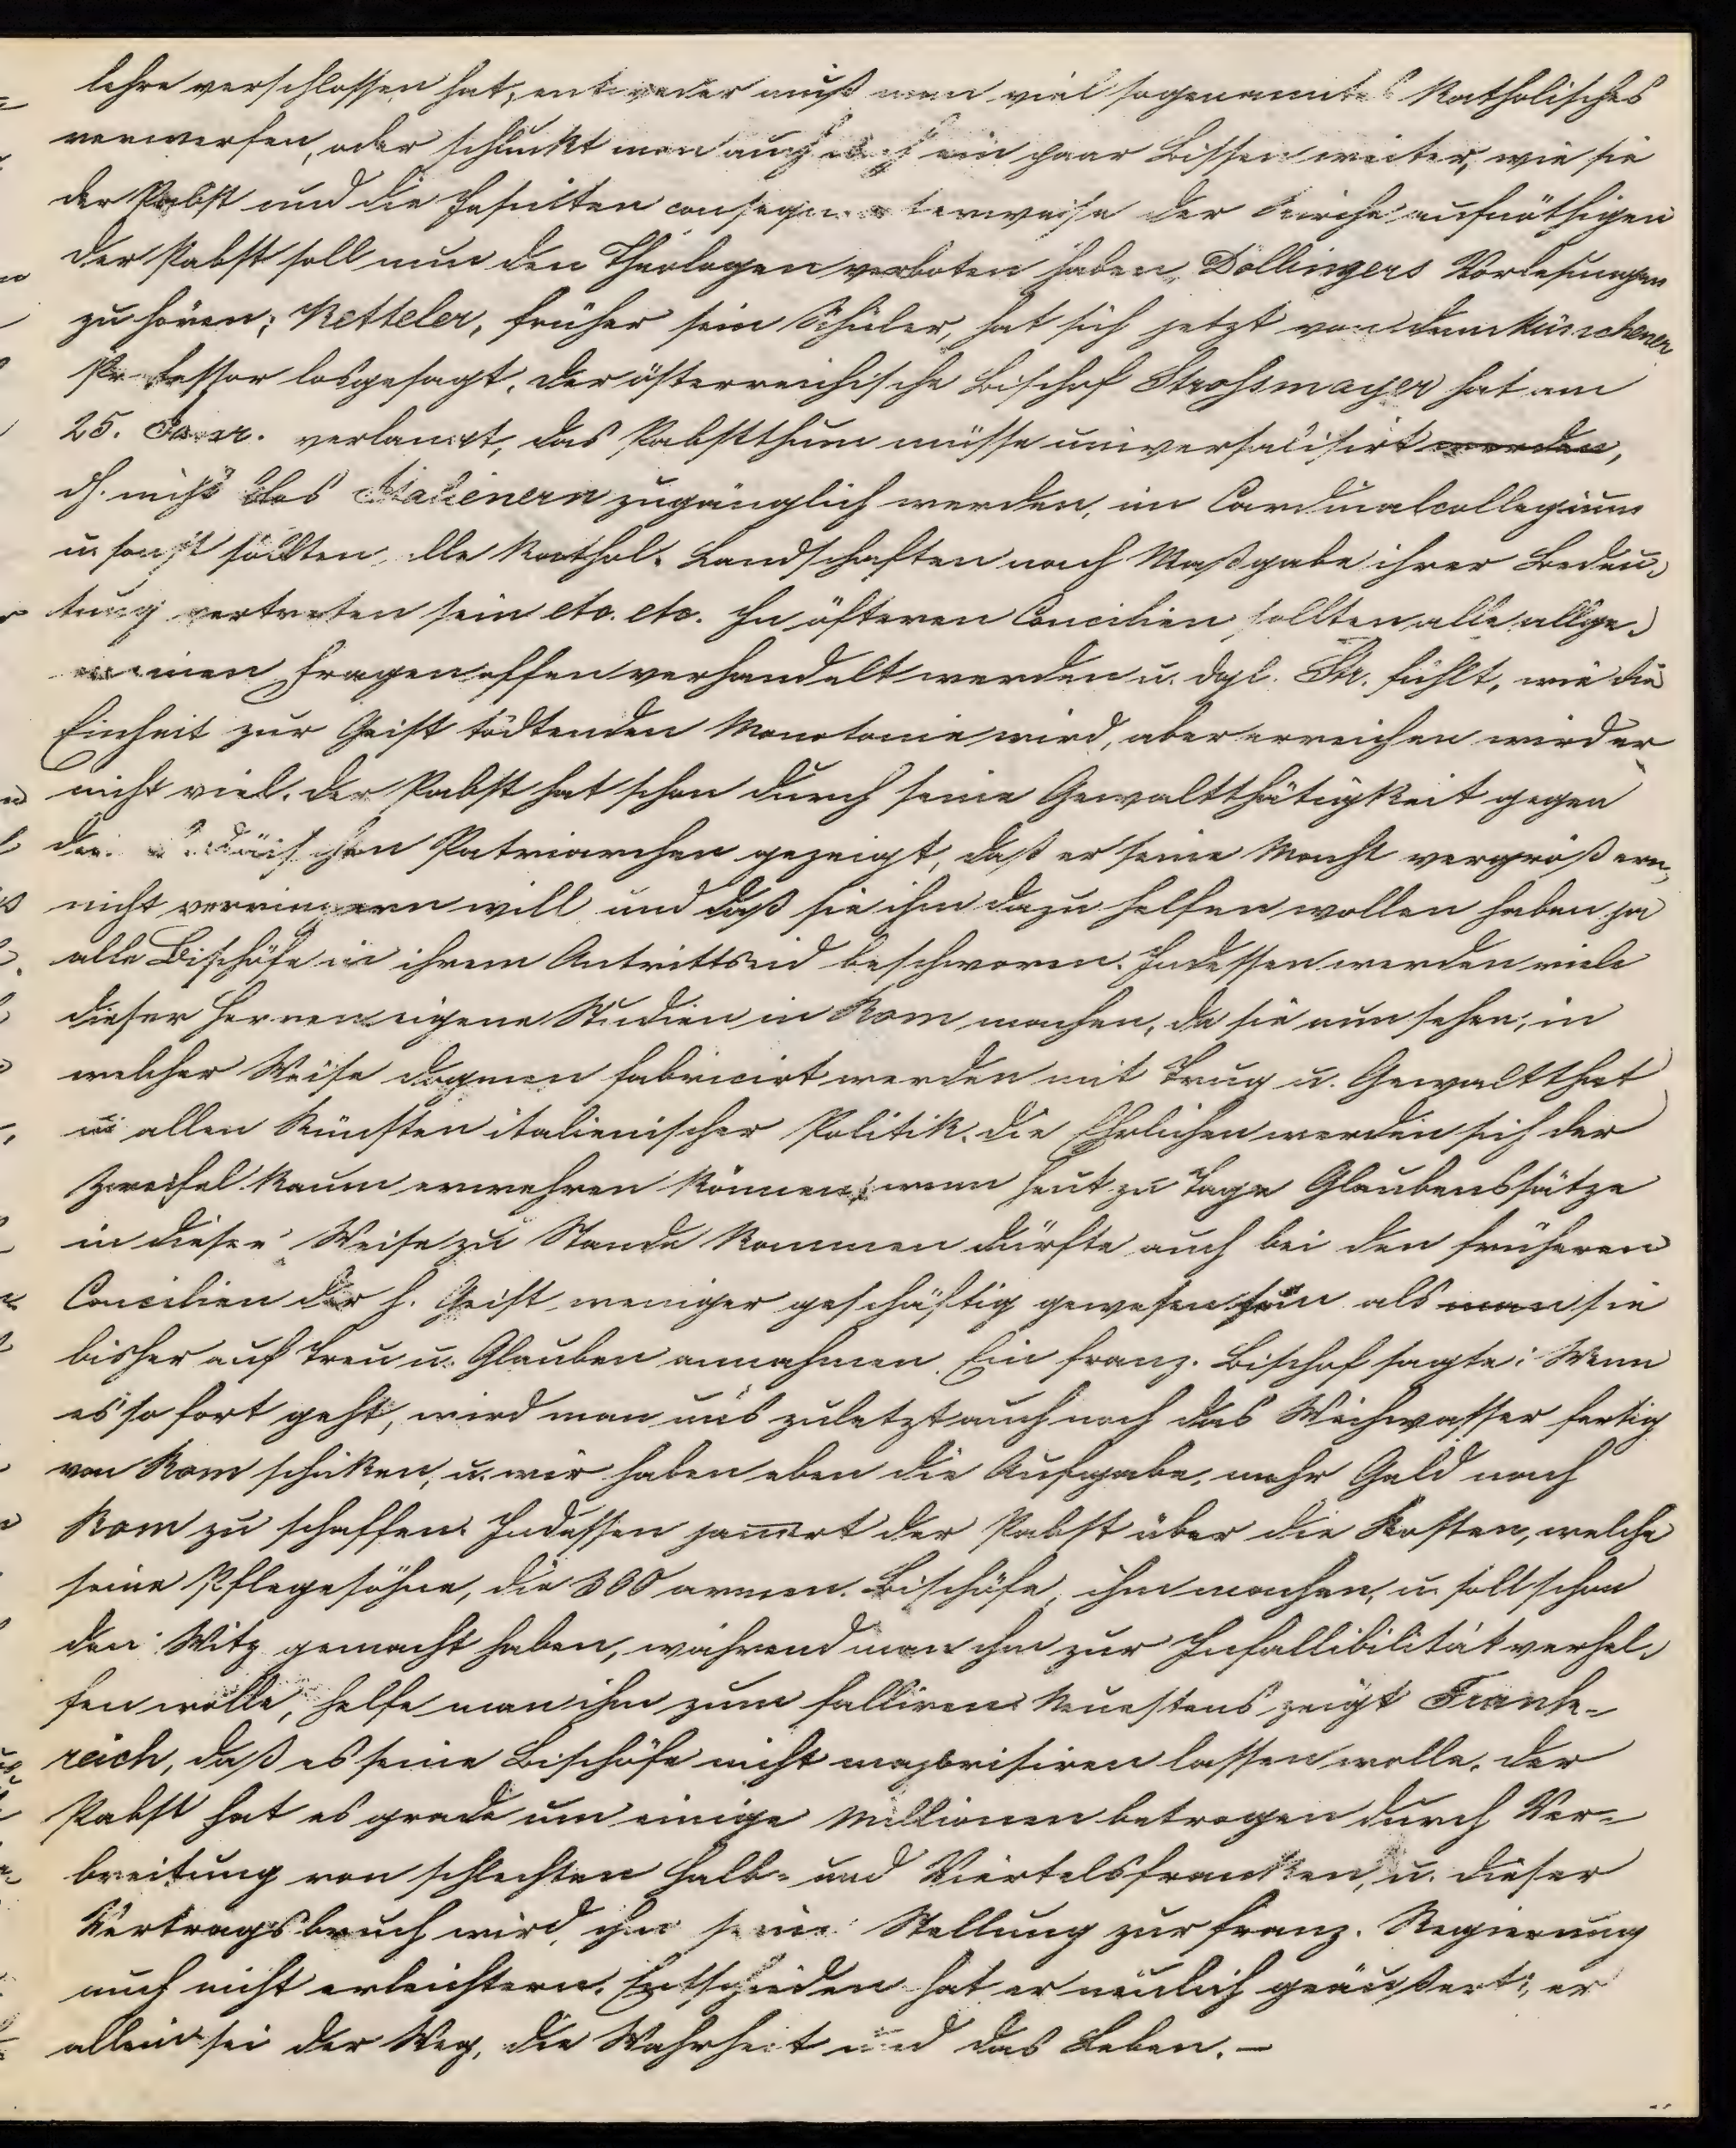 lehre verschlossen hat, entweder muß man viel sogenanntes Katholisches
verwerfen, oder schluckt man auch noch ein paar Bissen weiter, wie sie
der Pabst und die Jesuiten consequenterweise der Kirche aufnöthigen
der Pabst soll nun den Theologen verboten haben, Döllingers Vorlesungen
zu hören; Ketteler, früher sein Schüler, hat sich jetzt von dem Münchener
Professor losgesagt. Der österreichische Bischof Strossmayer hat am
25. Janr. verlangt, das Pabstthum müsse universalisirt werden,
dh. nicht blos Italienern zugänglich werden, im Cardinalcollegium
u. sonst sollten alle kathol. Landschaften nach Maßgabe ihrer Bedeu-
tung vertreten sein etc. etc. In öfteren Concilien sollten alle allge-
meinen Fragen offen verhandelt werden u. dgl. Str. fühlt, wie die
Einheit zur Geist tödtenden Monotonie wird, aber erreichen wird er
nicht viel. Der Pabst hat schon durch seine Gewaltthätigkeit gegen
den chaldäischen Patriarchen gezeigt, daß er seine Macht vergrößern,
nicht verringern will und daß sie ihm dazu helfen wollen haben ja
alle Bischöfe in ihrem Antrittseid beschworen. Indessen werden viele
dieser Herren eigene Studien in Rom machen, da sie nun sehen, in
welcher Weise Dogmen fabricirt werden mit Trug u. Gewaltthat
u allen Künsten italienischer Politik. Die Ehrlichen werden sich der
Zweifel kaum erwehren können; wenn heut zu Tage Glaubenssätze
in dieser Weise zu Stande kommen dürfte auch bei den früheren
Concilien der h. Geist weniger geschäftig gewesen sein als man sie
bisher auf Treu u. Glauben annahmen. Ein franz. Bischof sagte: Wenn
es so fort geht, wird man uns zuletzt auch noch das Weihwasser fertig
von Rom schicken, u. wir haben eben die Aufgabe, mehr Geld nach
Rom zu schaffen. Indessen jam̅ert der Pabst über die Kosten, welche
seine Pflegesöhne, die 300 armen Bischöfe, ihm machen, u. soll schon
den Witz gemacht haben, während man ihm zur Infallibilität verhel-
fen wolle, helfe man ihm zum falliren. Neuestens zeigt Frank-
reich, daß es seine Bischöfe nicht majorisiren lassen wolle. Der
Pabst hat es grade um einige Millionen betrogen durch Ver-
breitung von schlechten Halb- und Viertelsfranken, u. dieser
Vertragsbruch wird ihm seine Stellung zur franz. Regierung
auch nicht erleichtern. Entschieden hat er neulich geäußert, er
allein sei der Weg, die Wahrheit und das Leben. –